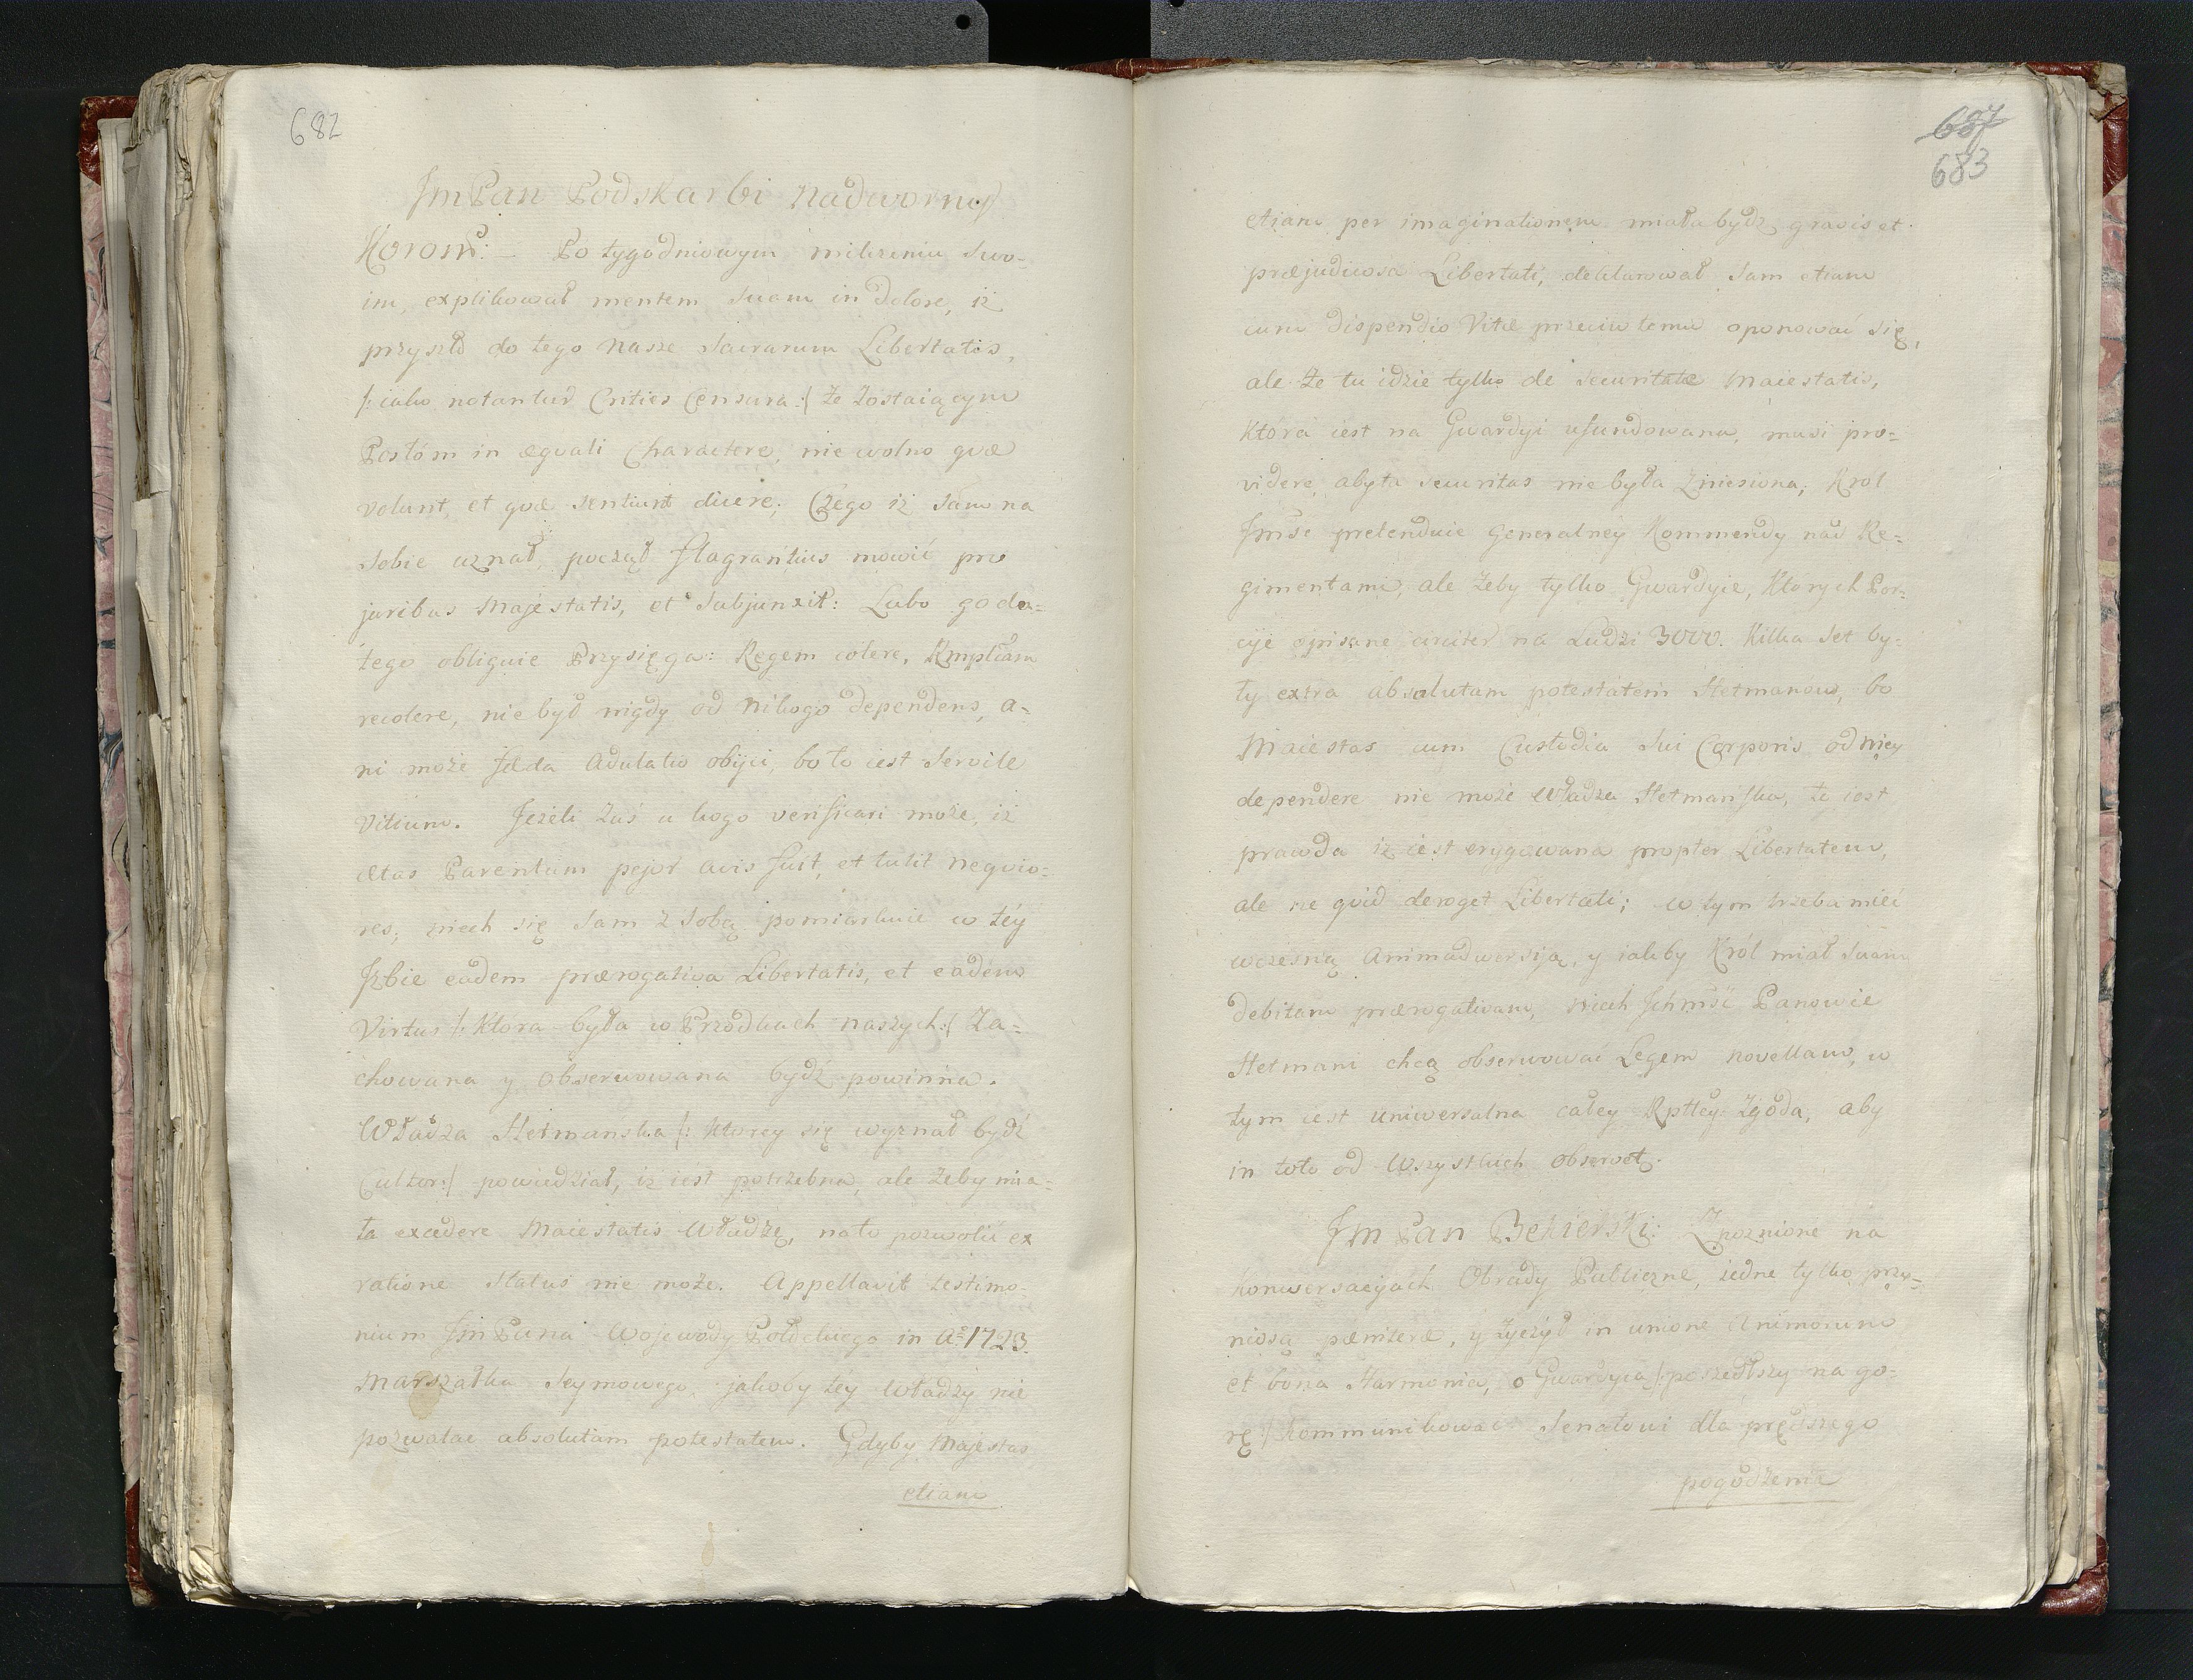 682
Jm Pan Podskarbi Nadworny
Koronẏ: — Po tygodniowym milczeniu swo-
im, explikował mentem suam in dolore, iż
przyszło do tego nasze sacrarum Libertatis,
/: iako notantur Critics Censura :/ że zostaiącym
Posłóm in æquali Charactere, nie wolno quæ
volunt, et quæ sentiunt dicere; Czego iż sam na
sobie uznał, począł flagrantius mowić pro
juribus Majestatis, et subjunxit: Lubo go do
tego obliguie Przysięga: Regem colere, Rmpltam
recolere, nie był nigdy od nikogo dependens, a-
ni może fœda adulatio obijci, bo to iest servile
vitium. Jeżeli zaś u kogo verificari może, iż
ætas Parentum pejor avis fuit, et tulit nequio-
res; niech się sam z sobą pomiarkuie w téy
Jzbie eadem prærogativa Libertatis, et eadem
Virtus /: która była w Przodkach naszych :/ Za-
chowana y obserwowana bydź powinna.
Władza Hetmańska /: ktorey się wyznał bydź
Cultor :/ powiedział, iż iest potrzebna, ale żeby mia-
ła excedere Maiestatis Władzę, na to pozwolić ex
ratione status nie może. Appellavit testimo-
nium Jm Pana Wojewody Połockiego in Aº 1723.
Marszałka Seymowego, jakoby tey władzy nie
pozwalać absolutam potestatem. Gdyby Majestas
etiam
687
683
etiam per imaginationem miała bydź gravis et
præjudiciosa Libertati, deklarował sam etiam
cum dispendio Vitæ przeciw temu oponować się,
ale że tu idzie tylko de securitate Maiestatis,
która iest na Gwardyi ufundowana, musi pro-
videre, aby ta securitas nie była zniesiona; Król
Jmść pretenduie Generalney Kommendy nad Re-
gimentami, ale żeby tylko Gwardyie, których Por-
cyje opisane circiter na Ludzi 3000. kilka set by-
ły extra absolutam potestatem Hetmanow, bo
Maiestas cum Custodia sui Corporis od niey
dependere nie może Władza Hetmańska, to iest
prawda iż iest erygowana propter Libertatem,
ale ne quid deroget Libertati; w tym trzeba mieć
wczesną animadwersiją, y iakby Król miał suam
debitam prærogativam, niech Jchmść Panowie
Hetmani chcą obserwować Legem novellam, w
tym iest uniwersalna całey Rpltey zgoda, aby
in toto od wszystkich observet.
Jm Pan Bekierski: Zpoznione na
konwersacyjach Obrady Publiczne, iedne tylko przy-
niosą pænitere, y życzył in unione animorum
et bona Harmonia, o Gwardyia /: poszedłszy na go-
rę :/ kommunikować Senatowi dla prędszego
pogodzenia